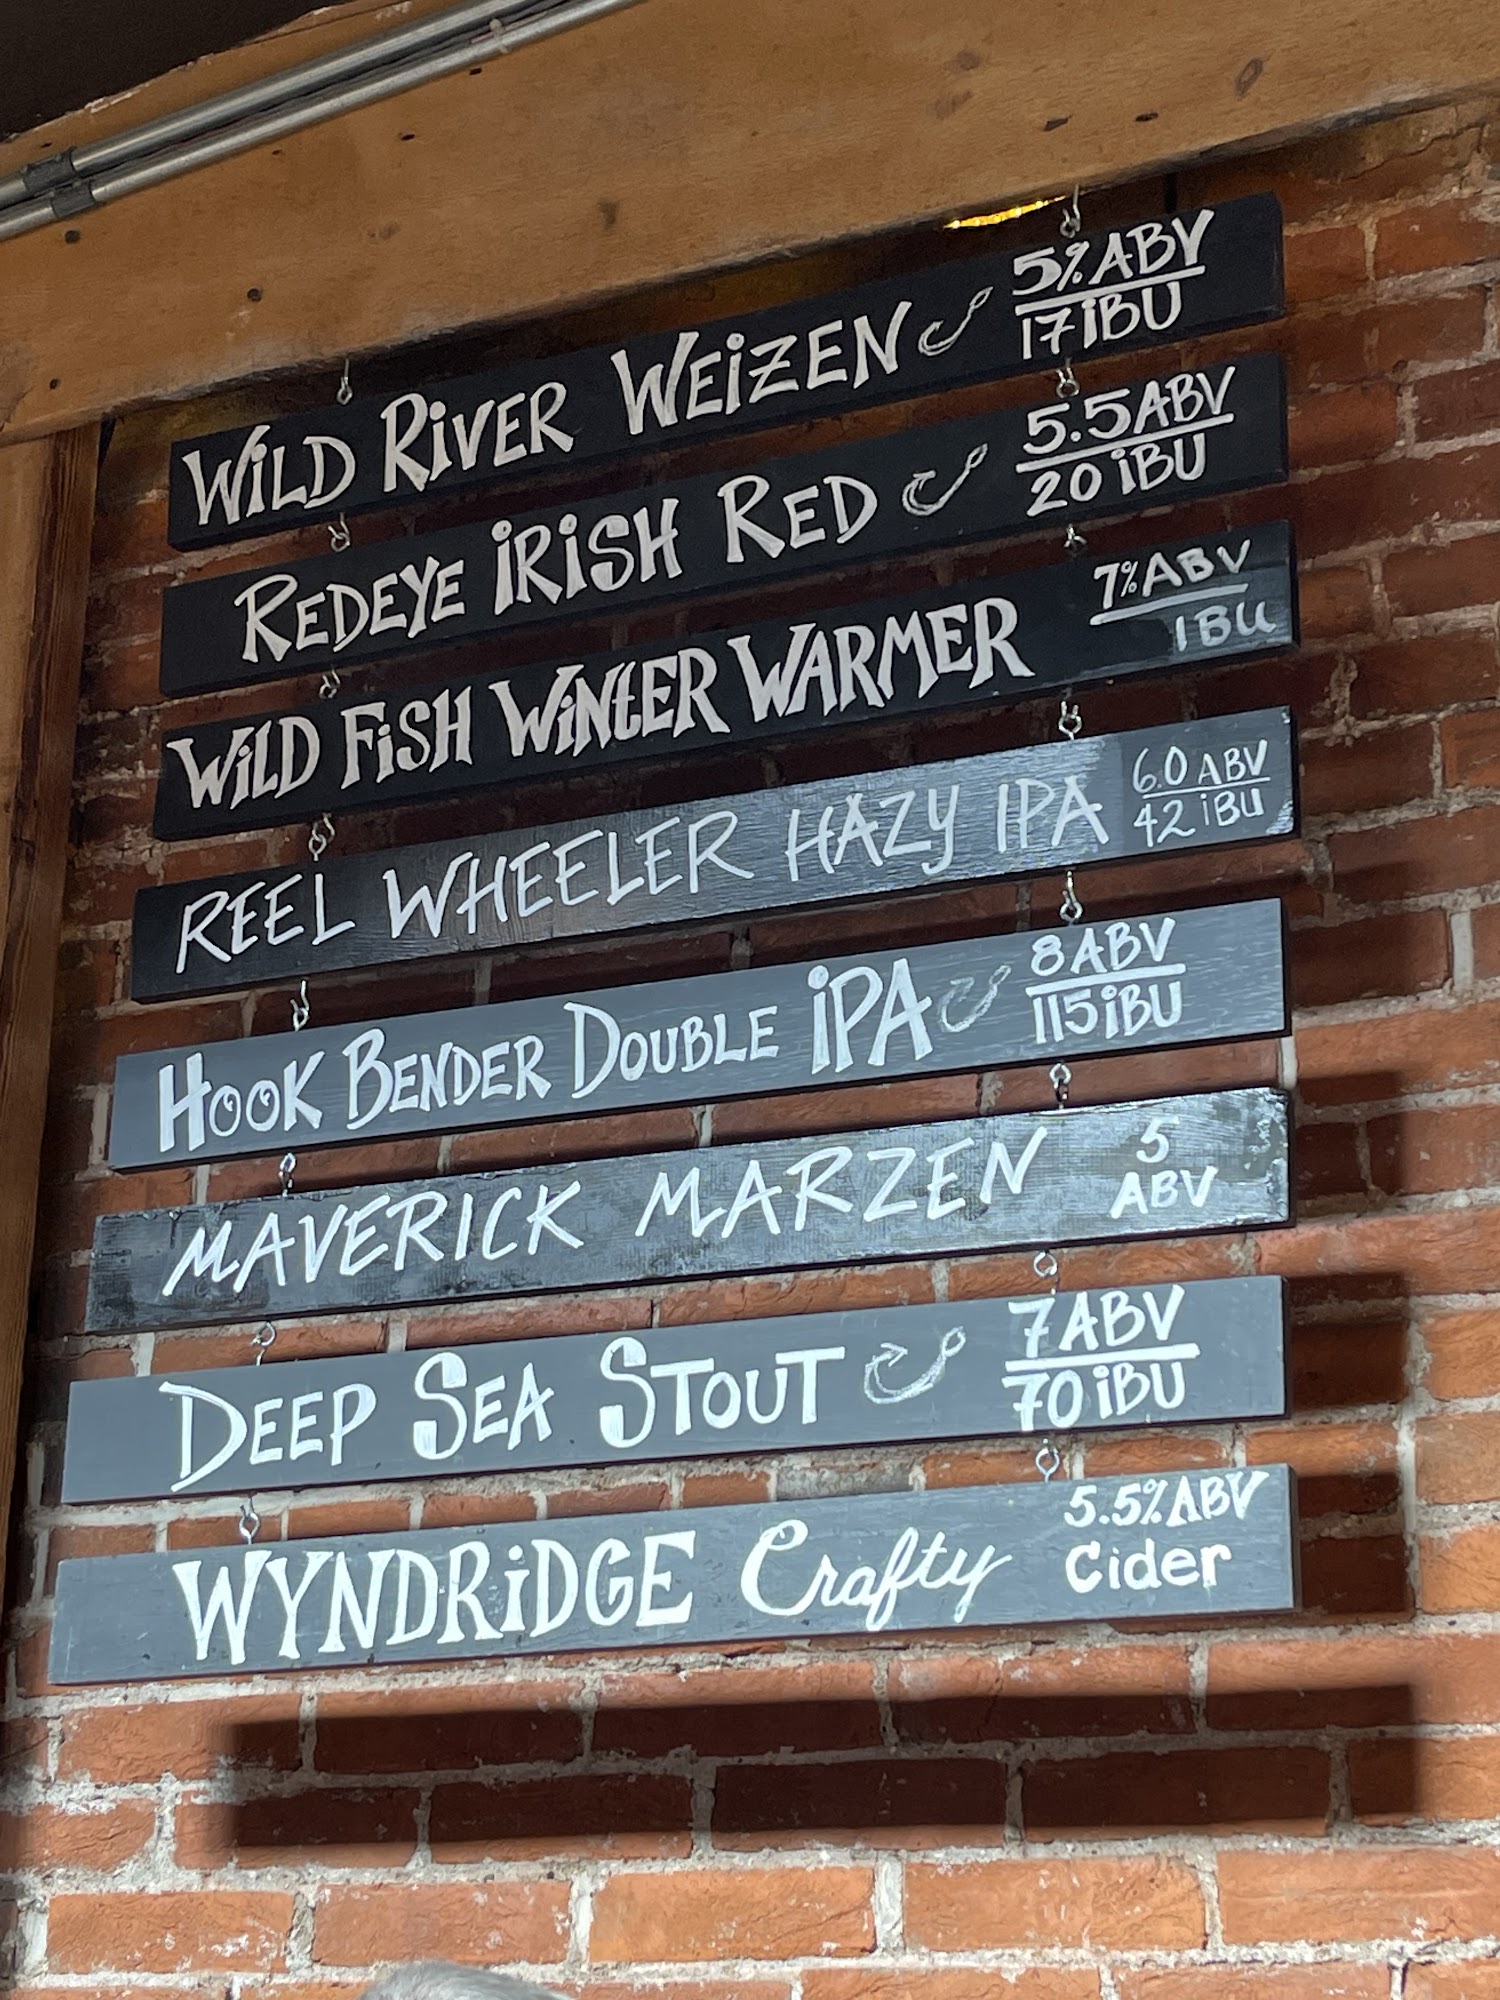 WiLD RiVER WEiZEN 5% ABV
17 iBU
REDEYE iRiSH RED 5.5 ABV
20 iBU
WiLD FiSH WiNtER WARMER 7% ABV
IBU
REEL WHEELER HAZY IPA 6.0 ABV
42 iBU
HOOK BENDER DOUBLE iPA 8 ABV
115 iBU
MAVERICK MARZEN 5
ABV
DEEP SEA STOUT 7 ABV
70 iBU
WYNDRiDGE Crafty 5.5% ABV
Cider